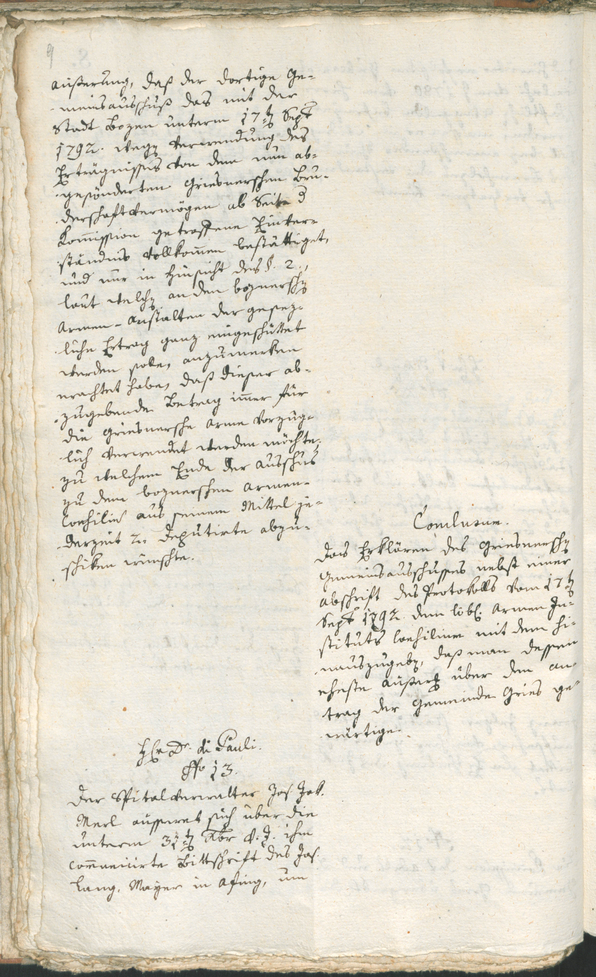 9
äußerung, daß der dortige Ge-
meinsausschuß das mit der
Stadt Bozen unterm 17ten Sept
1792. wegen Verwendung des
Erträgnisses von dem nun ab-
gesönderten Griesnerschen Bru-
derschaftvermögen ab Seite d
Kommission getroffene Einver-
ständnis vollkommen bestättiget,
und nur in Hinsicht des §. 2.,
laut welchen an den boznerschen
Armen-Anstalten der gesez-
liche Ertrag ganz eingeschüttet
werden solle, anzumerken
erachtet habe, daß dieser ab-
zugebende Betrag immer für
die Griesnersche Arme vorzüg-
lich verwendet werden möchte,
zu welchem Ende der Ausschus
zu dem boznerschen Armen-
Consilium aus seinem Mittel je-
derzeit 2. Deputirte abzu-
schiken wünschte.
Conclusum.
Das Erklären des Griesnerschen
Gemeinsausschusses nebst einer
Abschrift des Protokolls vom 17ten
Sept 1792 dem löbl. Armen In-
stituts Consilium mit dem hi-
nauszugeben, daß man dessen
eheste Äußerung über den An-
trag der Gemeinde Gries ge-
wärtige.
Hr. Dr. di Pauli.
No 13.
Der Spitalverwalter Jos. Jak.
Merl äusseret sich über die
unterm 31ten 8br d. J. ihm
communicirte Bittschrift des Jos.
Lang, Mayer in Afing, um